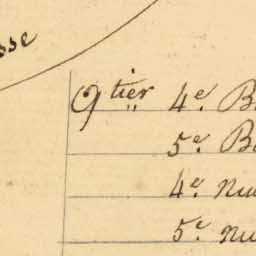 sse
Qtier 4e. B
5e. B
4e. nu
5e. nu